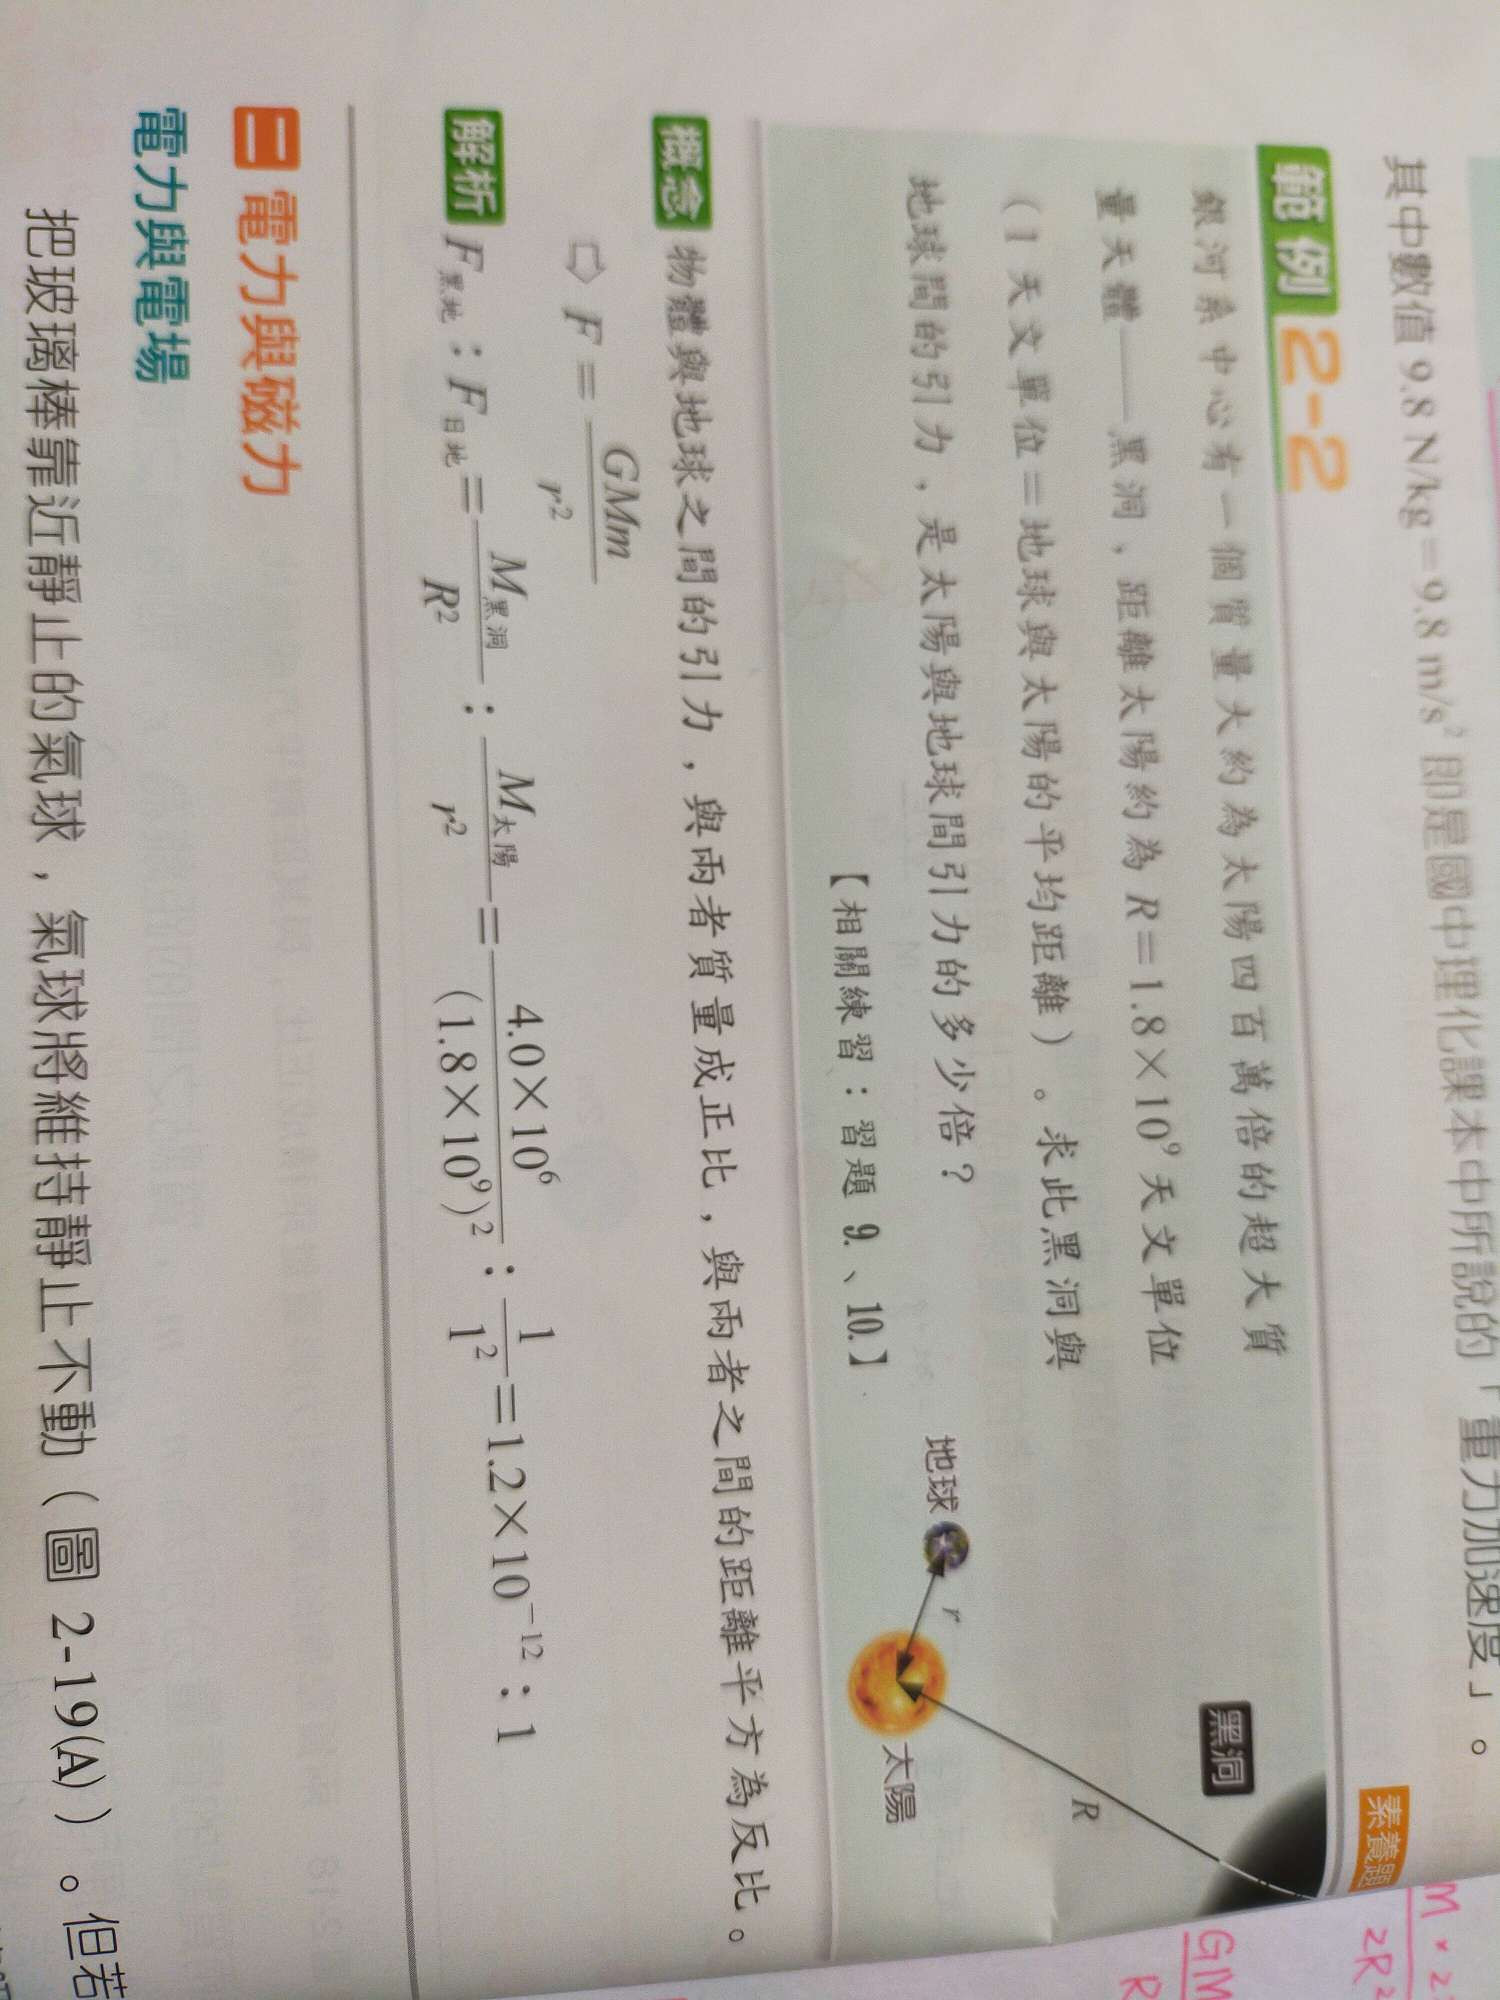 其中數值 9.8 N/kg＝9.8 m/s² 即是國中理化課本中所說的「重力加速度」。
範例 2-2
素養題
銀河系中心有一個質量大約為太陽四百萬倍的超大質
量天體——黑洞，距離太陽約為 R＝1.8×10⁹ 天文單位
（1 天文單位＝地球與太陽的平均距離）。求此黑洞與
地球間的引力，是太陽與地球間引力的多少倍？
【相關練習：習題 9.、10.】
黑洞
R
地球
r
太陽
概念 物體與地球之間的引力，與兩者質量成正比，與兩者之間的距離平方為反比。
⇨ F＝GMm/r²
解析 F黑地：F日地＝M黑洞/R²：M太陽/r²＝4.0×10⁶/(1.8×10⁹)²：1/1²＝1.2×10⁻¹²：1
二 電力與磁力
電力與電場
把玻璃棒靠近靜止的氣球，氣球將維持靜止不動（圖 2-19(A)）。但若
M
2R²
GM
R